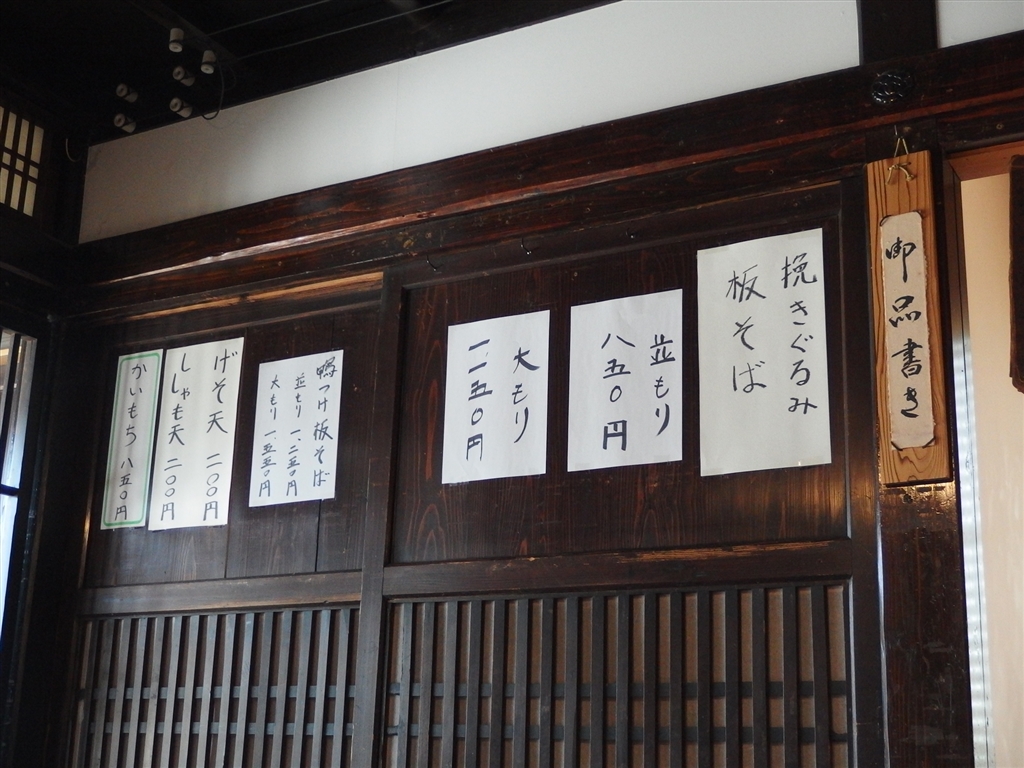 御品書き
挽きぐるみ
板そば
並もり
八五〇円
大もり
一、一五〇円
鴨つけ板そば
並もり 一、二五〇円
大もり 一、五五〇円
げそ天 二〇〇円
ししゃも天 二〇〇円
かいもち 八五〇円